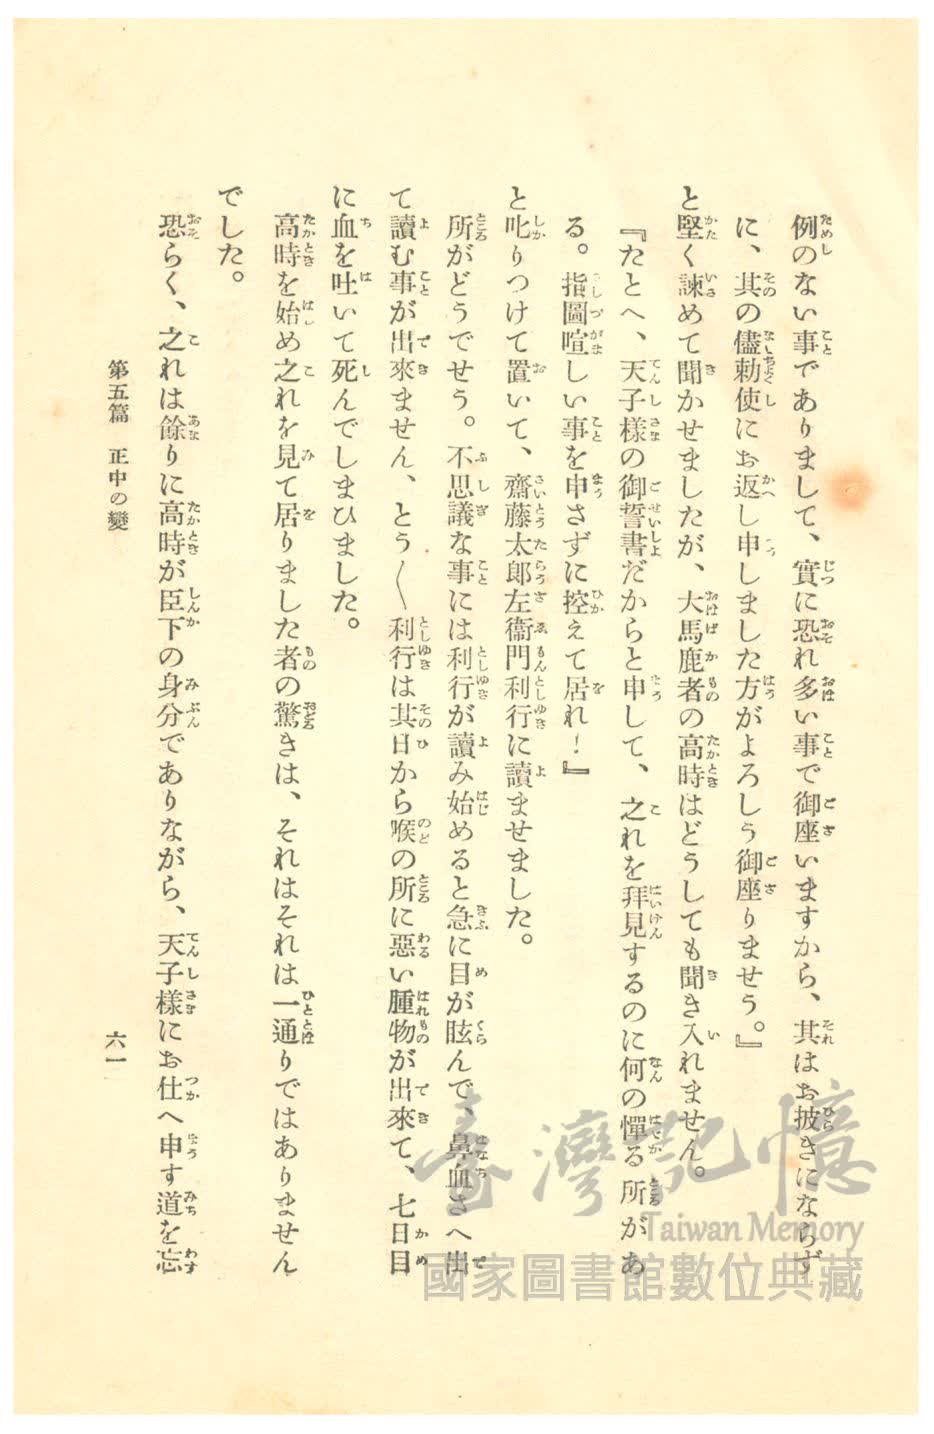 例のない事でありまして、實に恐れ多い事で御座いますから、其はお披きにならず
に、其の儘勅使にお返し申しました方がよろしう御座りませう。』
と堅く諫めて聞かせましたが、大馬鹿者の高時はどうしても聞き入れません。
『たとへ、天子樣の御誓書だからと申して、之れを拜見するのに何の憚る所があ
る。指圖喧しい事を申さずに控えて居れ！』
と叱りつけて置いて、齋藤太郎左衞門利行に讀ませました。
所がどうでせう。不思議な事には利行が讀み始めると急に目が眩んで、鼻血さへ出
て讀む事が出來ません、とう〳〵利行は其日から喉の所に惡い腫物が出來て、七日目
に血を吐いて死んでしまひました。
高時を始め之れを見て居りました者の驚きは、それはそれは一通りではありません
でした。
恐らく、之れは餘りに高時が臣下の身分でありながら、天子樣にお仕へ申す道を忘
第五篇　正中の變
六一
臺灣記憶
Taiwan Memory
國家圖書館數位典藏